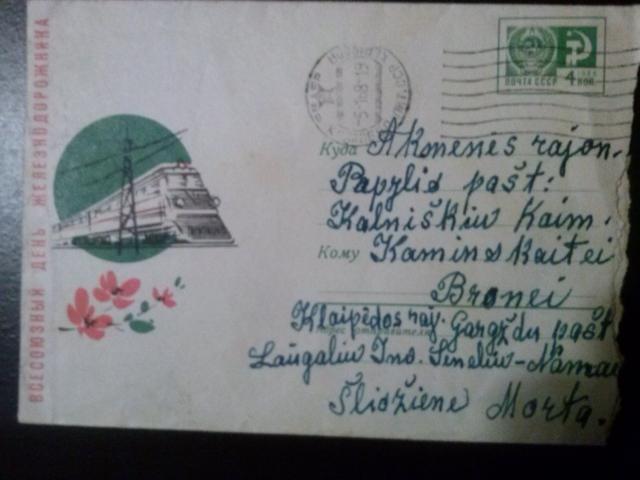 ВСЕСОЮЗНЫЙ ДЕНЬ ЖЕЛЕЗНОДОРОЖНИКА
ПОЧТА СССР
4 КОП.
Куда Akmenės rajon.
Papylio pašt:
Kalniškiu Kaim.
Кому Kaminskaitei
Bronei
Klaipėdos raj. Gargždu pašt
Laugaliu Inv. Seneliu-Namai
Šliožiene Morta.